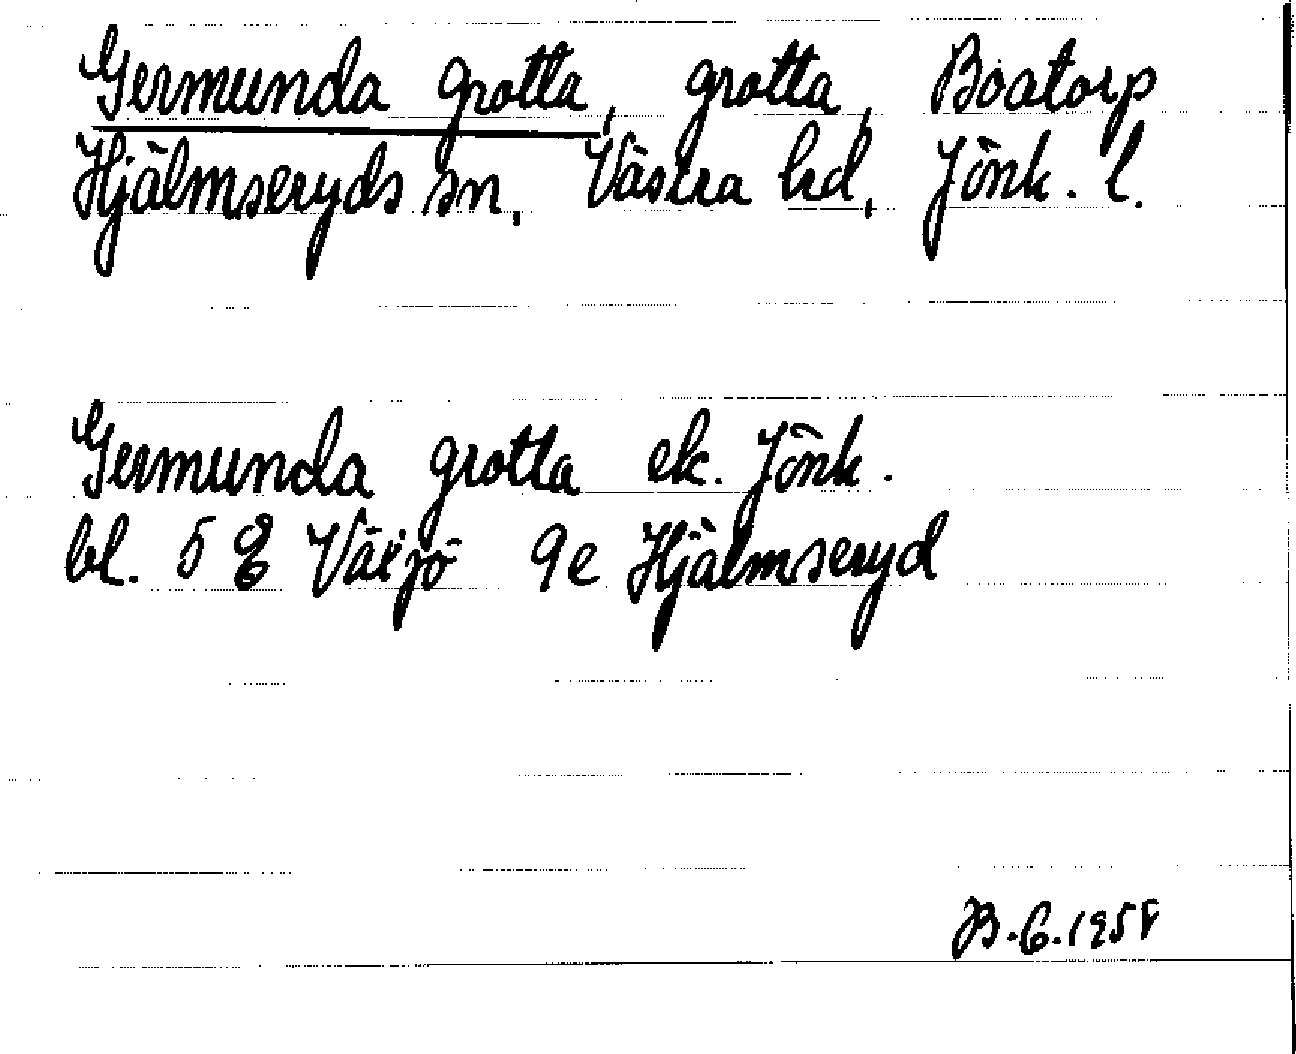 Germunda grotta, grotta, Boatorp
Hjälmseryds sn, Västra hd, Jönk. l.
Germunda grotta ek. Jönk.
bl. 5 E Växjö 9e Hjälmseryd
B.G. 1958